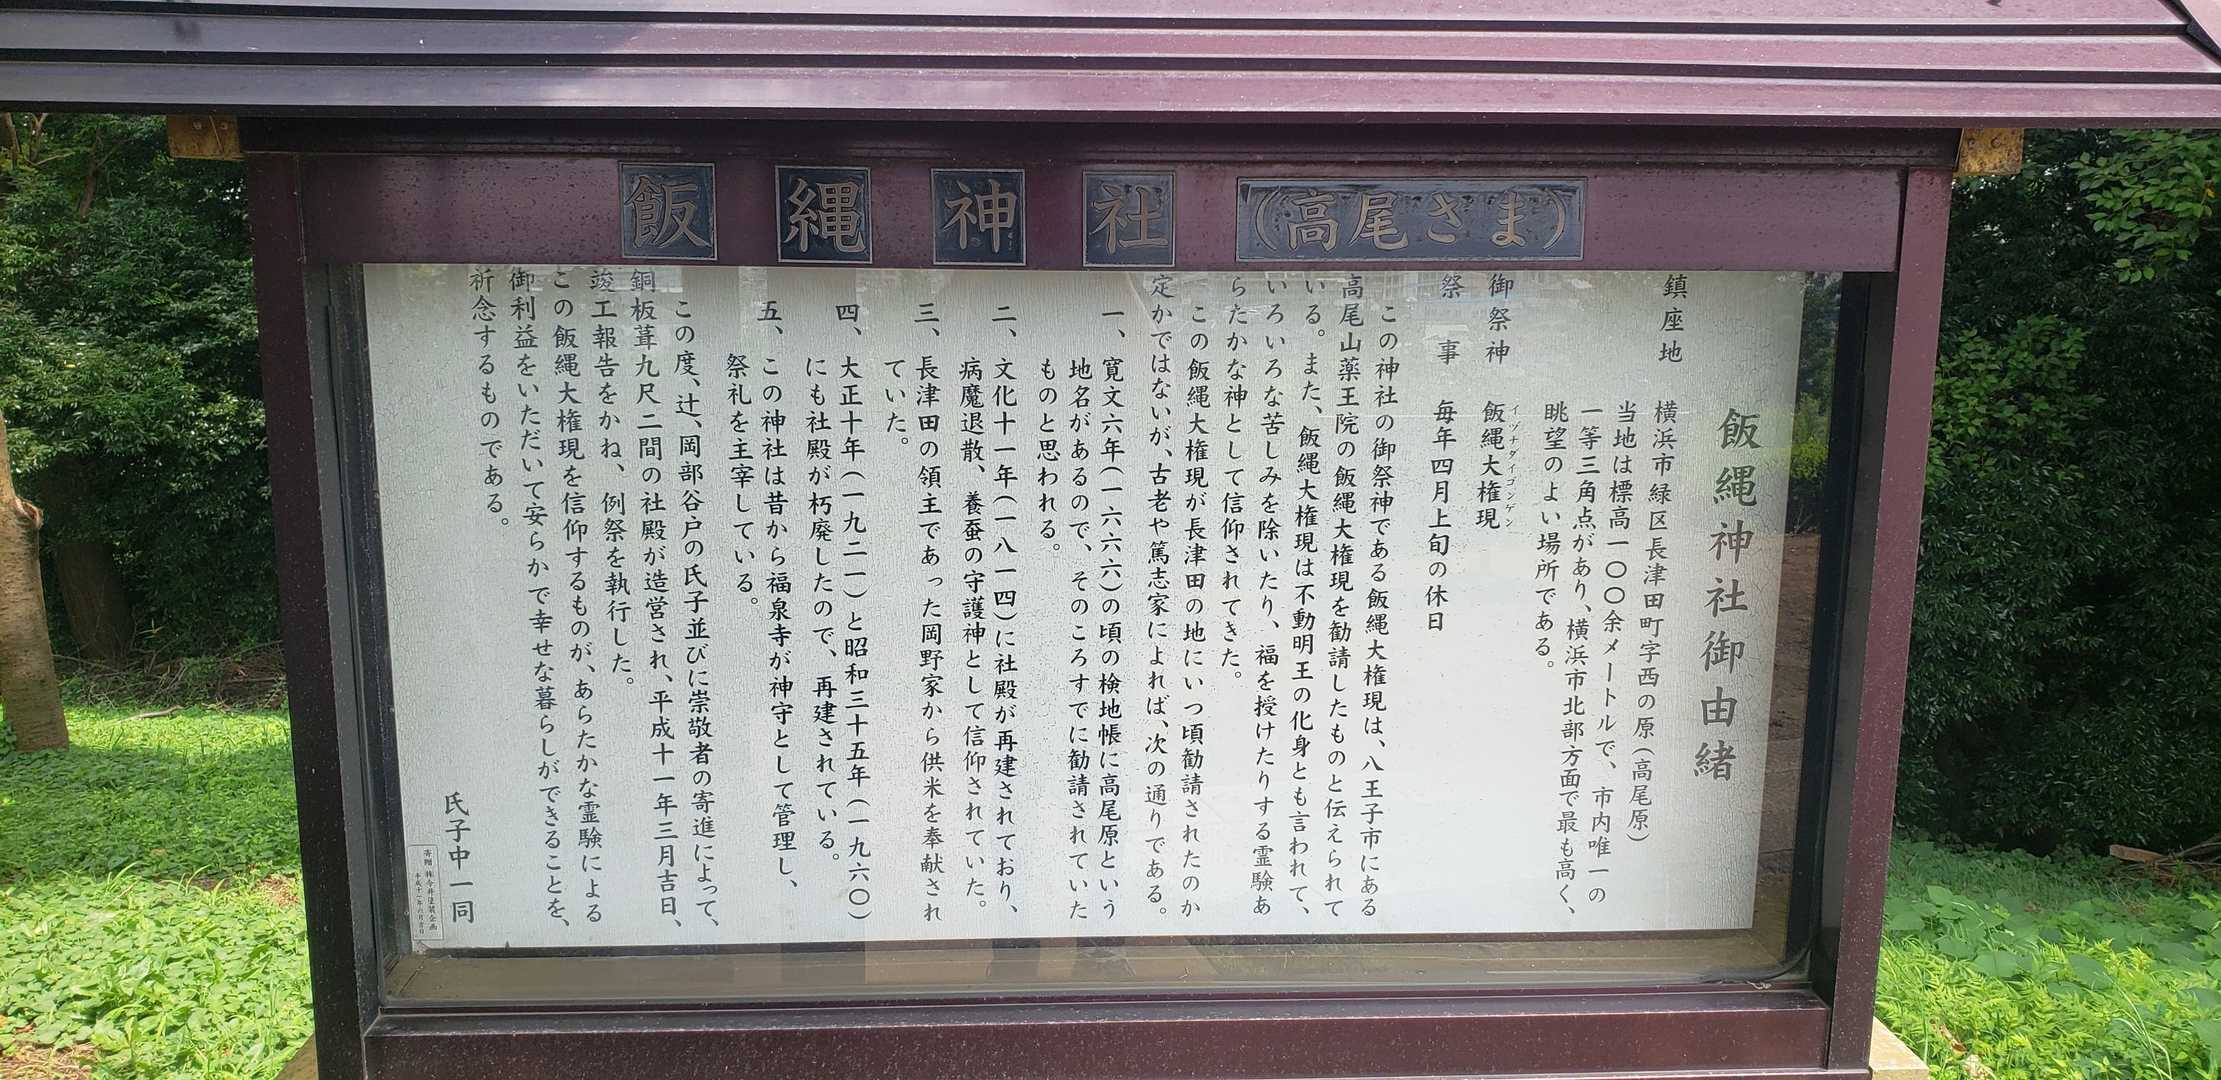 飯縄神社(高尾さま)
飯縄神社御由緒
鎮座地　横浜市緑区長津田町字西の原(高尾原)
当地は標高一〇〇余メートルで、市内唯一の
一等三角点があり、横浜市北部方面で最も高く、
眺望のよい場所である。
イヅナダイゴンゲン
御祭神　飯縄大権現
祭　事　毎年四月上旬の休日
この神社の御祭神である飯縄大権現は、八王子市にある
高尾山薬王院の飯縄大権現を勧請したものと伝えられて
いる。また、飯縄大権現は不動明王の化身とも言われて、
いろいろな苦しみを除いたり、福を授けたりする霊験あ
らたかな神として信仰されてきた。
この飯縄大権現が長津田の地にいつ頃勧請されたのか
定かではないが、古老や篤志家によれば、次の通りである。
一、寛文六年(一六六六)の頃の検地帳に高尾原という
地名があるので、そのころすでに勧請されていた
ものと思われる。
二、文化十一年(一八一四)に社殿が再建されており、
病魔退散、養蚕の守護神として信仰されていた。
三、長津田の領主であった岡野家から供米を奉献され
ていた。
四、大正十年(一九二一)と昭和三十五年(一九六〇)
にも社殿が朽廃したので、再建されている。
五、この神社は昔から福泉寺が神守として管理し、
祭礼を主宰している。
この度、辻、岡部谷戸の氏子並びに崇敬者の寄進によって、
銅板葺九尺二間の社殿が造営され、平成十一年三月吉日、
竣工報告をかね、例祭を執行した。
この飯縄大権現を信仰するものが、あらたかな霊験による
御利益をいただいて安らかで幸せな暮らしができることを、
祈念するものである。
氏子中一同
寄贈　㈱今井塗装企画
平成十一年六月吉日